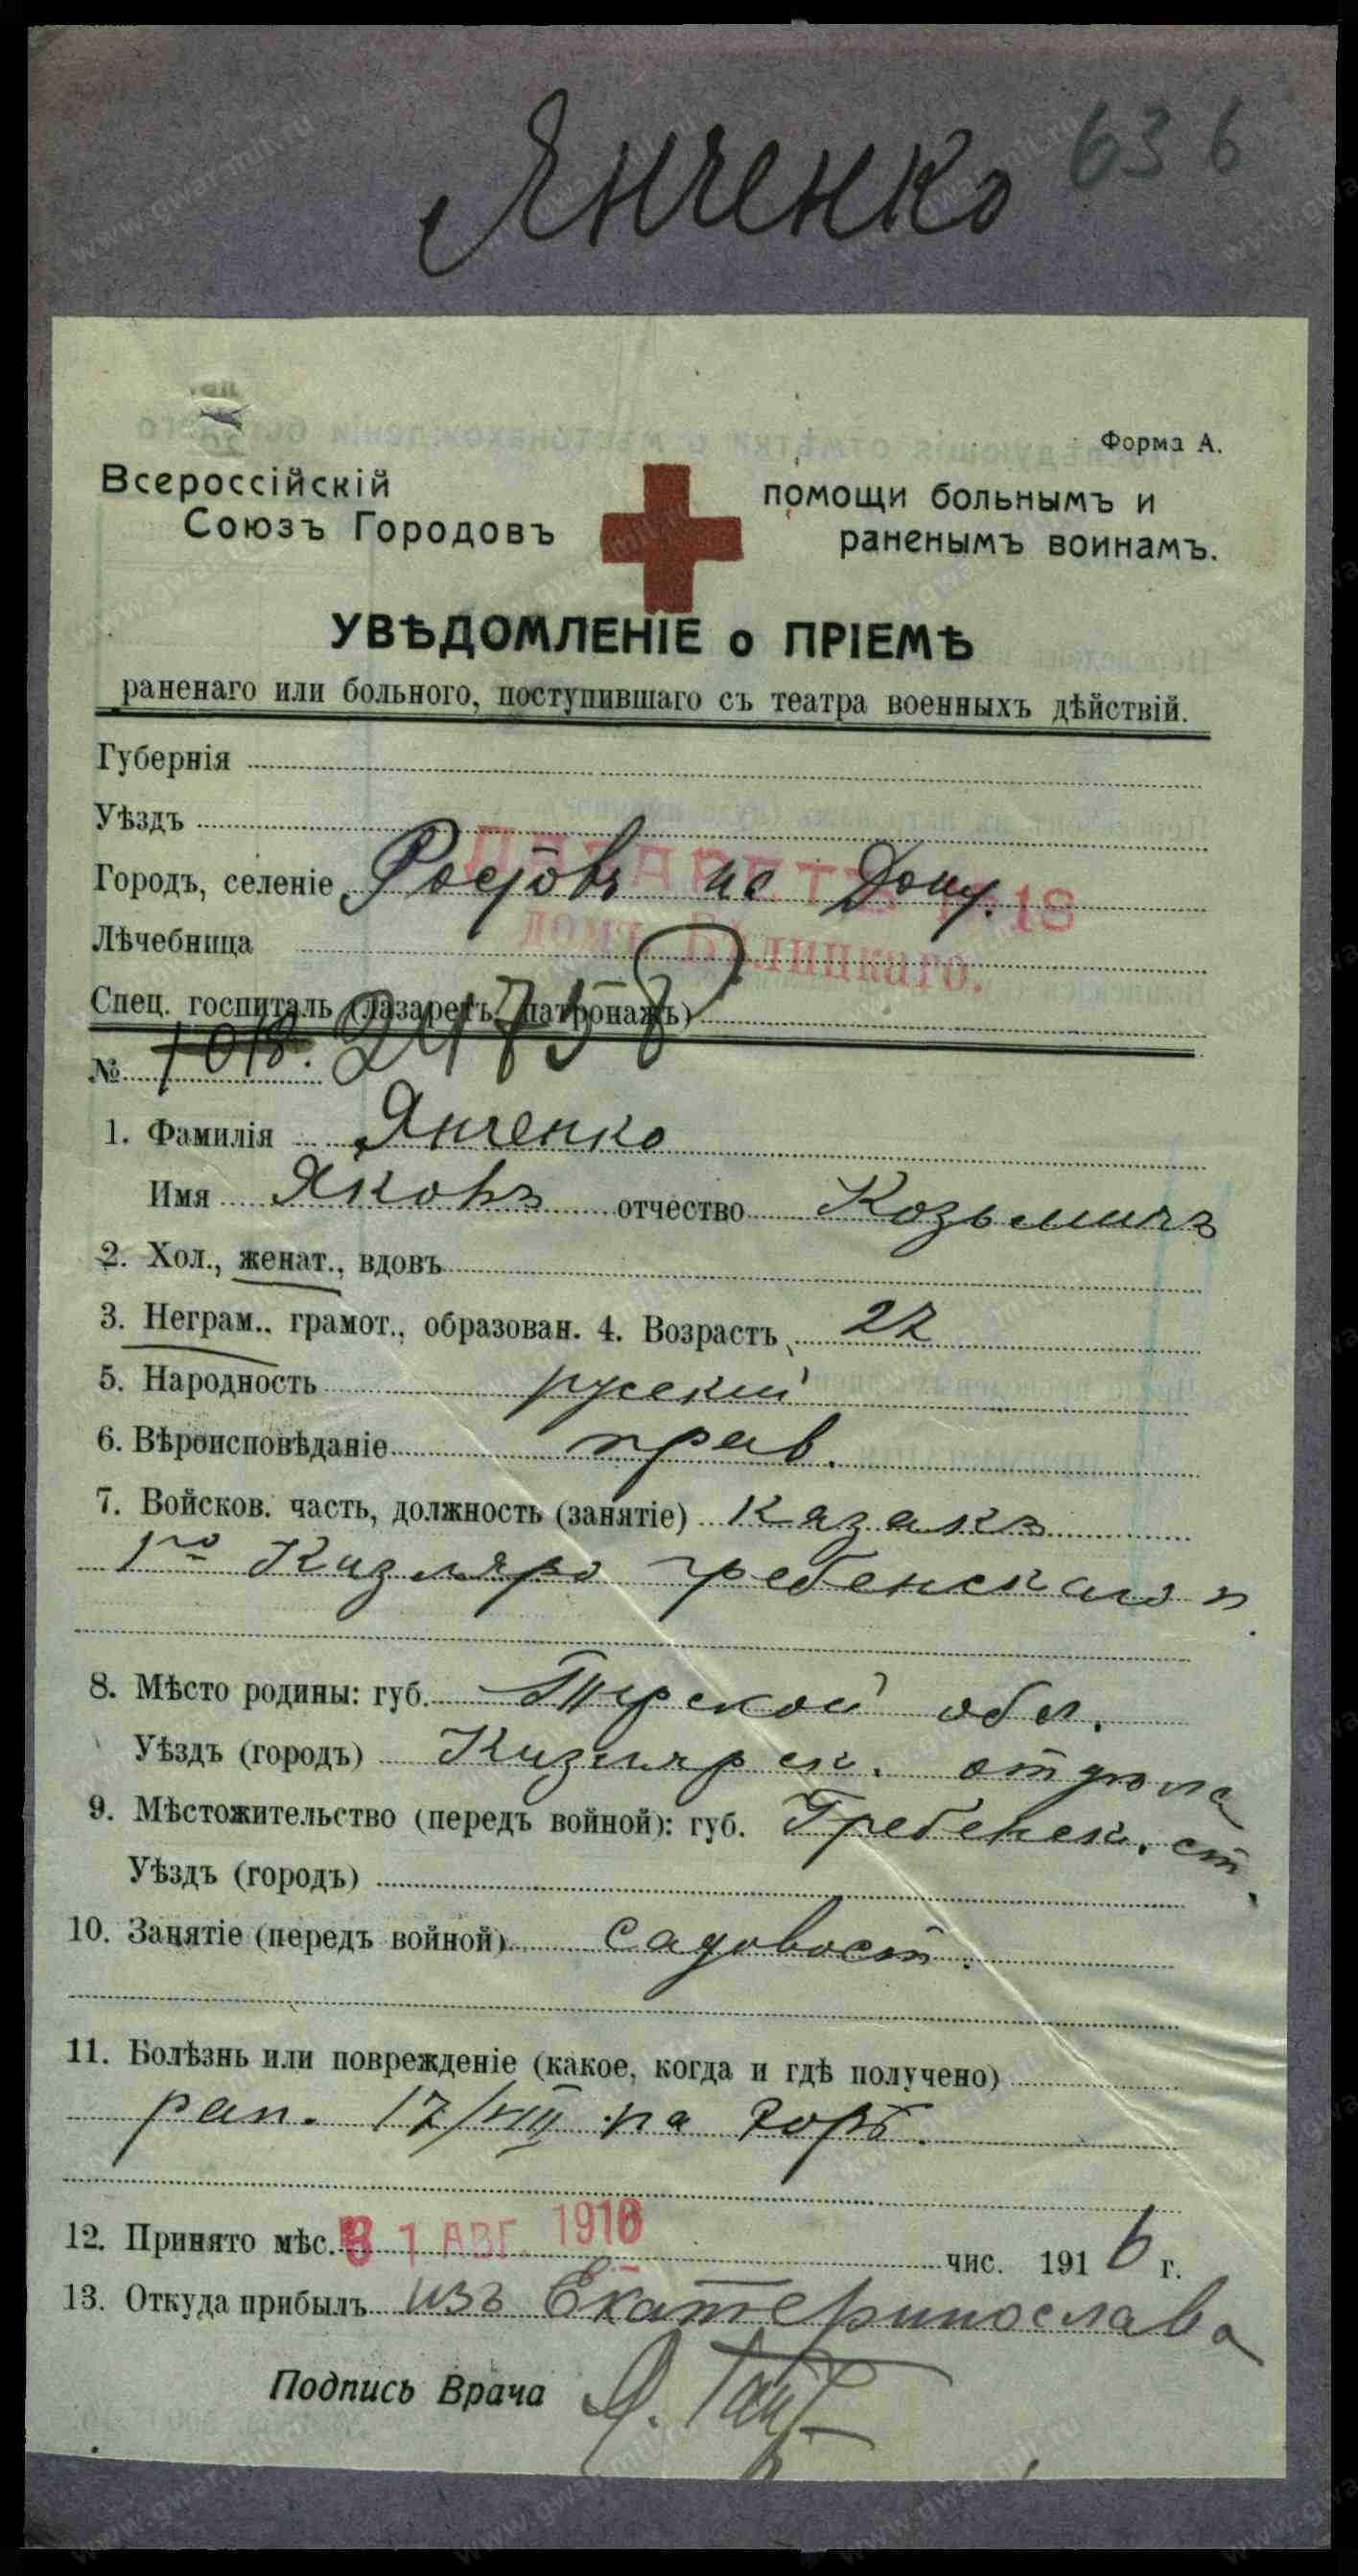 Янченко 636
Форма А.
Всероссійскій
Союзъ Городовъ
помощи больнымъ и
раненымъ воинамъ.
УВѢДОМЛЕНІЕ о ПРІЕМѢ
раненаго или больного, поступившаго съ театра военныхъ дѣйствій.
Губернія
Уѣздъ
Городъ, селеніе Ростовъ на Дону.
ЛАЗАРЕТЪ № 18
Лѣчебница
домъ Бѣлицкаго.
Спец. госпиталь (лазаретъ, патронажъ)
№ 1018. 24758
1. Фамилія Янченко
Имя Яковъ отчество Козьмичъ
2. Хол., женат., вдовъ
3. Неграм., грамот., образован. 4. Возрастъ 27
5. Народность русскій
6. Вѣроисповѣданіе прав.
7. Войсков. часть, должность (занятіе) казакъ
1го Кизляро гребенскаго п.
8. Мѣсто родины: губ. Терской обл.
Уѣздъ (городъ) Кизлярск. отдѣла
9. Мѣстожительство (передъ войной): губ. Гребенск. ст.
Уѣздъ (городъ)
10. Занятіе (передъ войной) садовост.
11. Болѣзнь или поврежденіе (какое, когда и гдѣ получено)
ран. 17/VIII на горѣ.
12. Принято мѣс. 31 АВГ. 1916 чис. 1916 г.
13. Откуда прибылъ изъ Екатеринослава
Подпись Врача
www.gwar.mil.ru